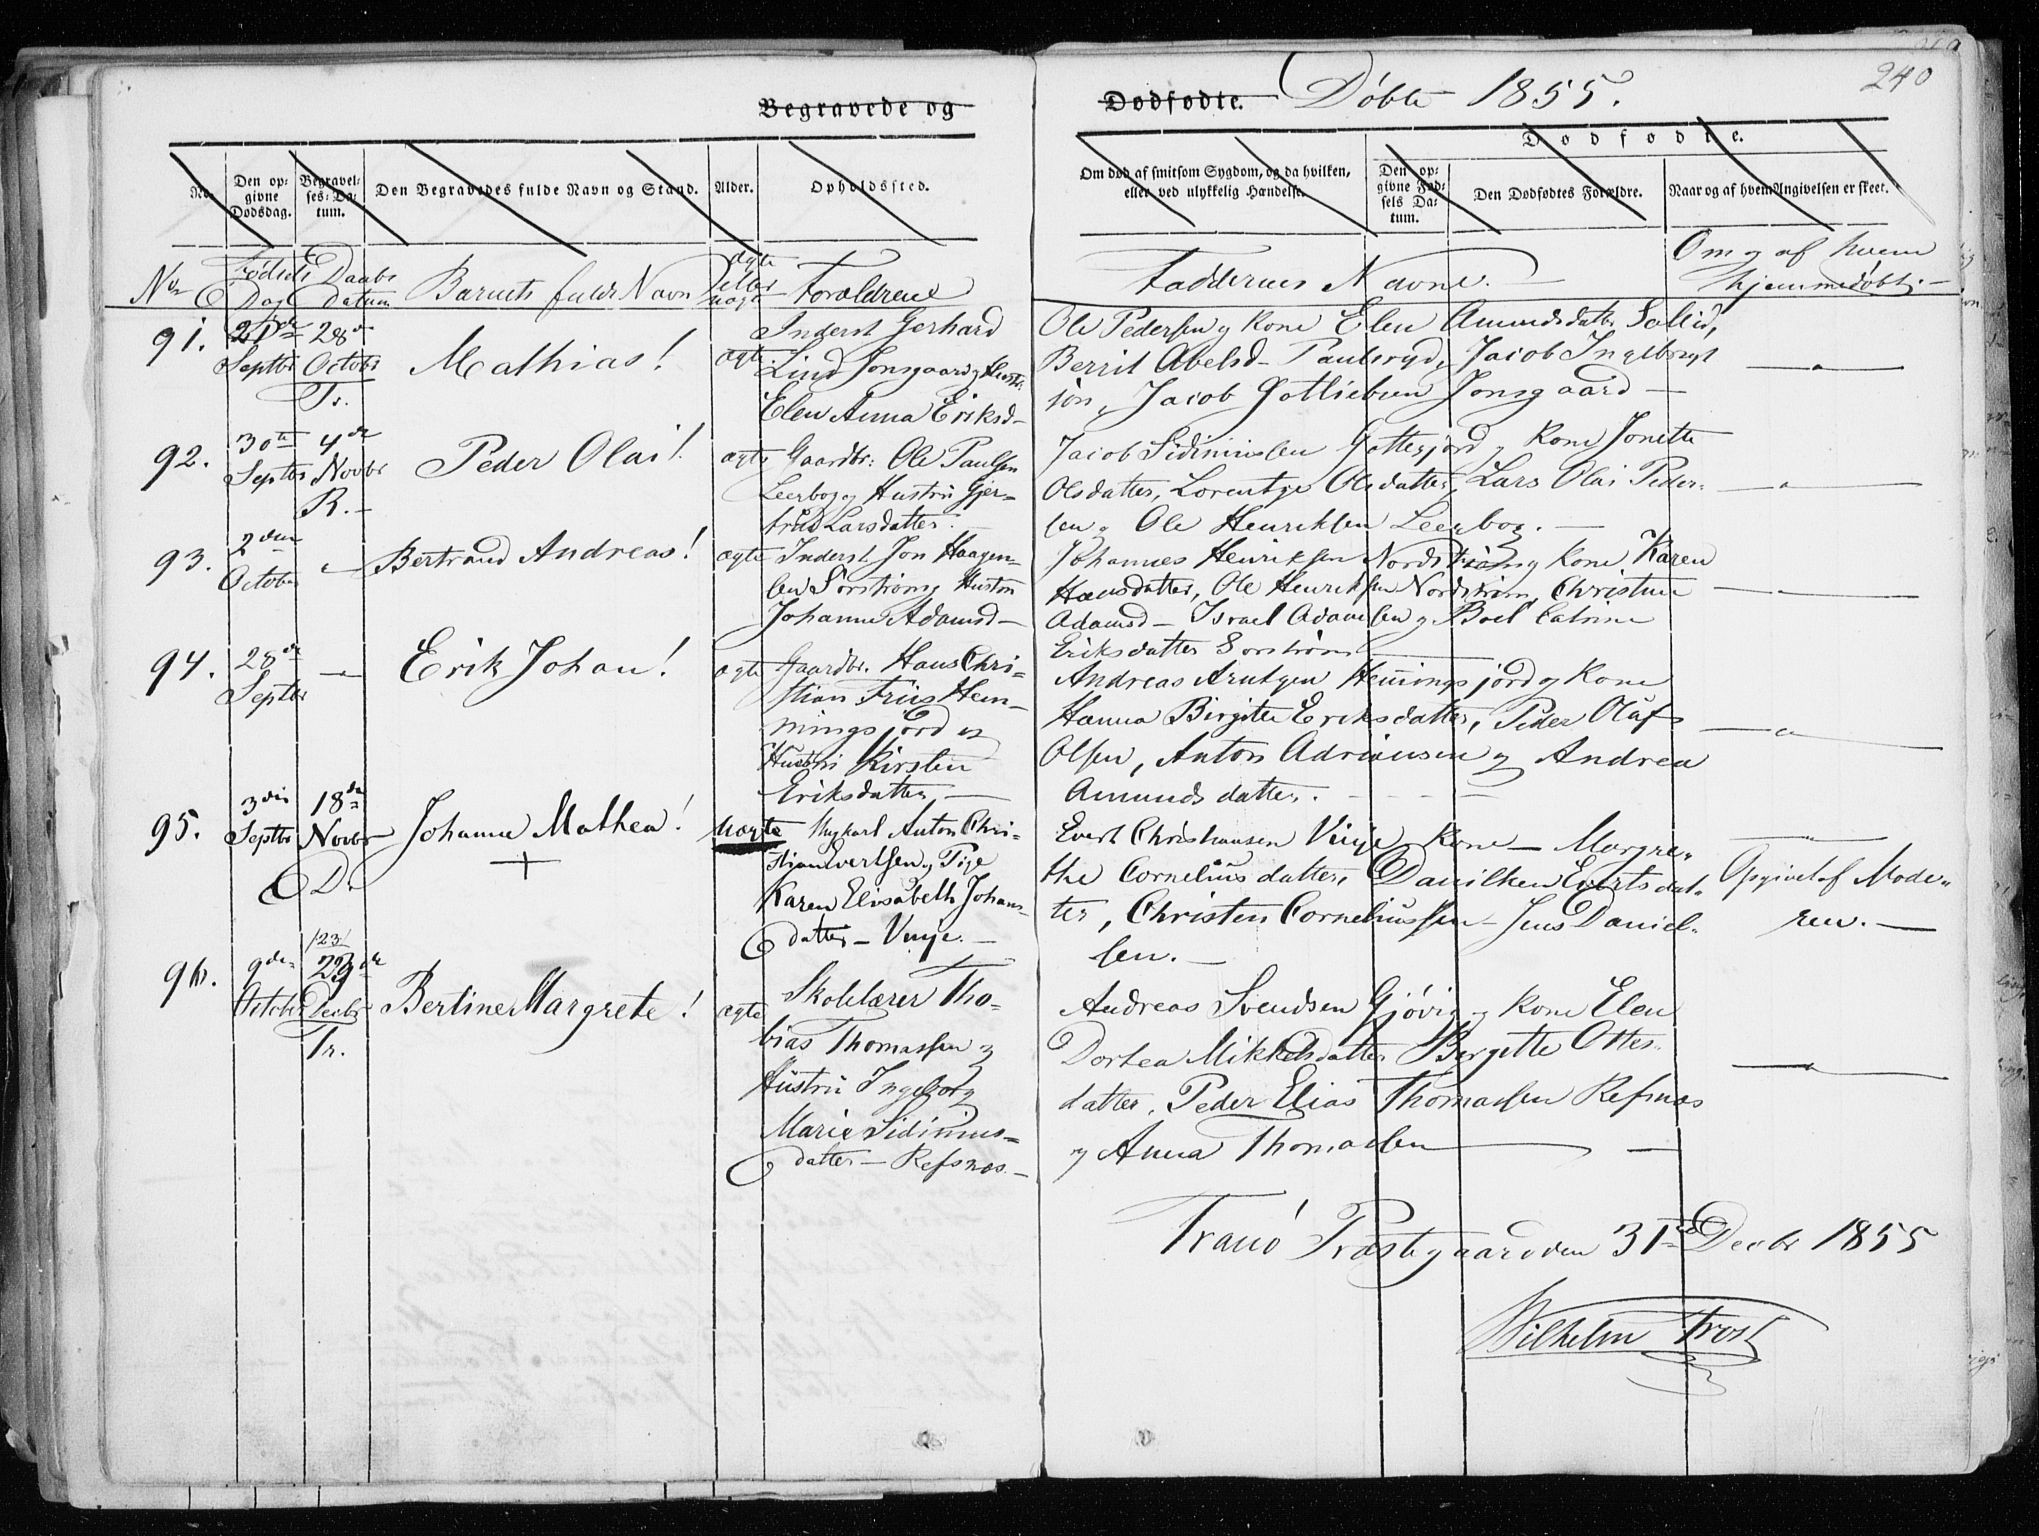 240
Begravede og Dødfødte. Døbte 1855.
Dødfødte.
No.
Den opgivne Dødsdag.
Begravelses-Datum.
Den Begravedes fulde Navn og Stand.
Alder.
Opholdssted.
Om død af smitsom Sygdom, og da hvilken, eller ved ulykkelig Hændelse.
Den opgivne Fødsels Datum.
Den Dødfødtes Forældre.
Naar og af hvem Angivelsen er skeet.
No
Fødsels Dag
Daabs Datum
Barnets fulde Navn
ægte eller uægte
Forældrene
Faddernes Navne.
Om og af hvem hjemmedøbt.
91.
21de Septbr
28de Octobr
Tr.
Mathias!
ægte
Inderst Gerhard
Lind Jonsgaard og Hustr:
Elen Anna Eriksd
Ole Pedersen og Kone Elen Amundsdatter Sollid,
Berrit Abelsd Paulsryd, Jacob Ingebrigt
sön, Jacob Gotliebsen Jonsgaard
92.
30te Septbr
4de Novbr
R.
Peder Olai!
ægte
Gaardbr: Ole Paulsen
Leerbog og Hustru Gjer-
trud Larsdatter.
Jacob Sidiniussen Gottesjord og Kone Jonette
Olsdatter, Lorentze Olsdatter, Lars Olai Peder-
sen og Ole Henriksen Leerbog.
93.
2den October
Bertrand Andreas!
ægte
Inderst Jon Haagen-
sen Sorstrøm og Hustru
Johanne Adamsd
Johannes Henriksen Nordstrøm og Kone Karen
Hansdatter, Ole Henriksen Nordstrøm, Christine
Adamsd Israel Adamsen og Boel Catrine
Eriksdatter Sorstrøm
94.
28de Septbr
Erik Johan!
ægte
Gaardbr. Hans Chri-
stian Friis Hem-
mingsjord og
Hustru Kirsten
Eriksdatter
Andreas Arntzen Hemingsjord og Kone
Hanna Birgitte Eriksdatter, Peder Olufs
Olsen, Anton Adriansen og Andrea
Amundsdatter.
95.
3die Septbr
18de Novbr
D.
Johanne Mathea!
uægte
Ungkarl Anton Chri-
stian Evertsen og Pige
Karen Elisabeth Johans
datter Vinje.
Evert Christiansen Vinje Kone Margre-
the Corneliusdatter, Danilken Evertsdat-
ter, Christen Corneliussen Jens Daniel-
sen.
Opgivet af Mode-
ren.
96.
9de October
/23/
23de Decbr
Tr.
Bertine Margrete!
ægte
Skolelærer Tho-
bias Thomassen og
Hustru Ingeborg
Marie Sidinius-
datter Refsnæs.
Andreas Svendsen Gjövig og Kone Elen
Dortea Mikkelsdatter Birgitte Ottes-
datter, Peder Elias Thomassen Refsnæs
og Anna Thomassen
Tranö Præstegaard den 31te Decbr 1855
Wilhelm Frost